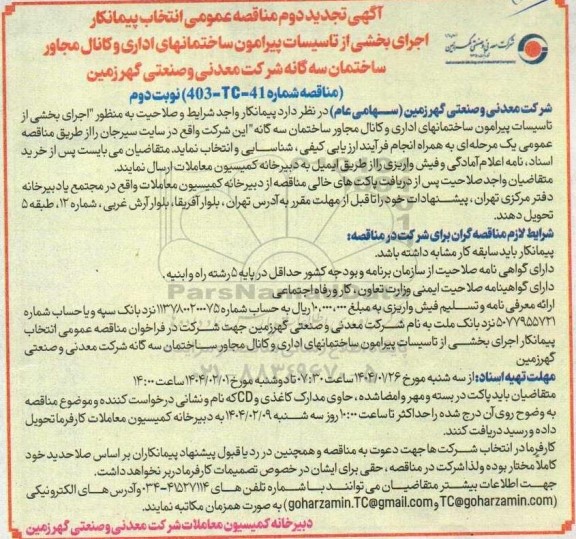 آگهی تجدید دوم مناقصه عمومی انتخاب پیمانکار
اجرای بخشی از تاسیسات پیرامون ساختمانهای اداری و کانال مجاور
ساختمان سه گانه شرکت معدنی و صنعتی گهرزمین
(مناقصه شماره 41-TC-403) نوبت دوم
شرکت معدنی و صنعتی گهرزمین (سهامی عام) در نظر دارد پیمانکار واجد شرایط و صلاحیت به منظور "اجرای بخشی از
تاسیسات پیرامون ساختمانهای اداری و کانال مجاور ساختمان سه گانه" این شرکت واقع در سایت سیرجان را از طریق مناقصه
عمومی یک مرحله ای به همراه انجام فرآیند ارزیابی کیفی، شناسایی و انتخاب نماید. متقاضیان می بایست پس از خرید
اسناد، نامه اعلام آمادگی و فیش واریزی را از طریق ایمیل به دبیرخانه کمیسیون معاملات ارسال نمایند.
متقاضیان واجد صلاحیت پس از دریافت پاکت های خالی مناقصه از دبیرخانه کمیسیون معاملات واقع در مجتمع یا دبیرخانه
دفتر مرکزی تهران، پیشنهادات خود را تا قبل از مهلت مقرر به آدرس تهران، بلوار آفریقا، بلوار آرش غربی، شماره ۱۲، طبقه ۵
تحویل دهند.
شرایط لازم مناقصه گران برای شرکت در مناقصه:
پیمانکار باید سابقه کار مشابه داشته باشد.
دارای گواهی نامه صلاحیت از سازمان برنامه و بودجه کشور حداقل در پایه ۵ رشته راه و ابنیه.
دارای گواهینامه صلاحیت ایمنی وزارت تعاون، کار و رفاه اجتماعی
ارائه معرفی نامه و تسلیم فیش واریزی به مبلغ ۱۰،۰۰۰،۰۰۰ ریال به حساب شماره ۱۱۳۷۸۰۰۲۰۰۰۷۵ نزد بانک سپه و یا حساب شماره
۵۰۷۷۹۵۵۷۲۱ نزد بانک ملت به نام شرکت معدنی و صنعتی گهرزمین جهت شرکت در فراخوان مناقصه عمومی انتخاب
پیمانکار اجرای بخشی از تاسیسات پیرامون ساختمانهای اداری و کانال مجاور ساختمان سه گانه شرکت معدنی و صنعتی
گهرزمین
مهلت تهیه اسناد: از سه شنبه مورخ ۱۴۰۴/۰۱/۲۶ ساعت ۰۷:۳۰ تا دوشنبه مورخ ۱۴۰۴/۰۲/۰۱ ساعت ۱۴:۰۰
متقاضیان باید پاکت در بسته و مهر و امضا شده، حاوی مدارک کاغذی و CD که نام و نشانی درخواست کننده و موضوع مناقصه
به وضوح روی آن درج شده را حداکثر تا ساعت ۱۰:۰۰ روز سه شنبه ۱۴۰۴/۰۲/۰۹ به دبیرخانه کمیسیون معاملات کارفرما تحویل
داده و رسید دریافت کنند.
کارفرما در انتخاب شرکت ها جهت دعوت به مناقصه و همچنین در رد یا قبول پیشنهاد پیمانکاران بر اساس صلاحدید خود
کاملاً مختار بوده و لذا شرکت در مناقصه، حقی برای ایشان در خصوص تصمیمات کارفرما در بر نخواهد داشت.
جهت اطلاعات بیشتر متقاضیان می توانند با شماره تلفن های ۴۱۵۲۷۱۱۴-۰۳۴ و آدرس های الکترونیکی
(TC@goharzamin.com و goharzamin.TC@gmail.com) به صورت همزمان مکاتبه نمایند.
دبیرخانه کمیسیون معاملات شرکت معدنی و صنعتی گهرزمین